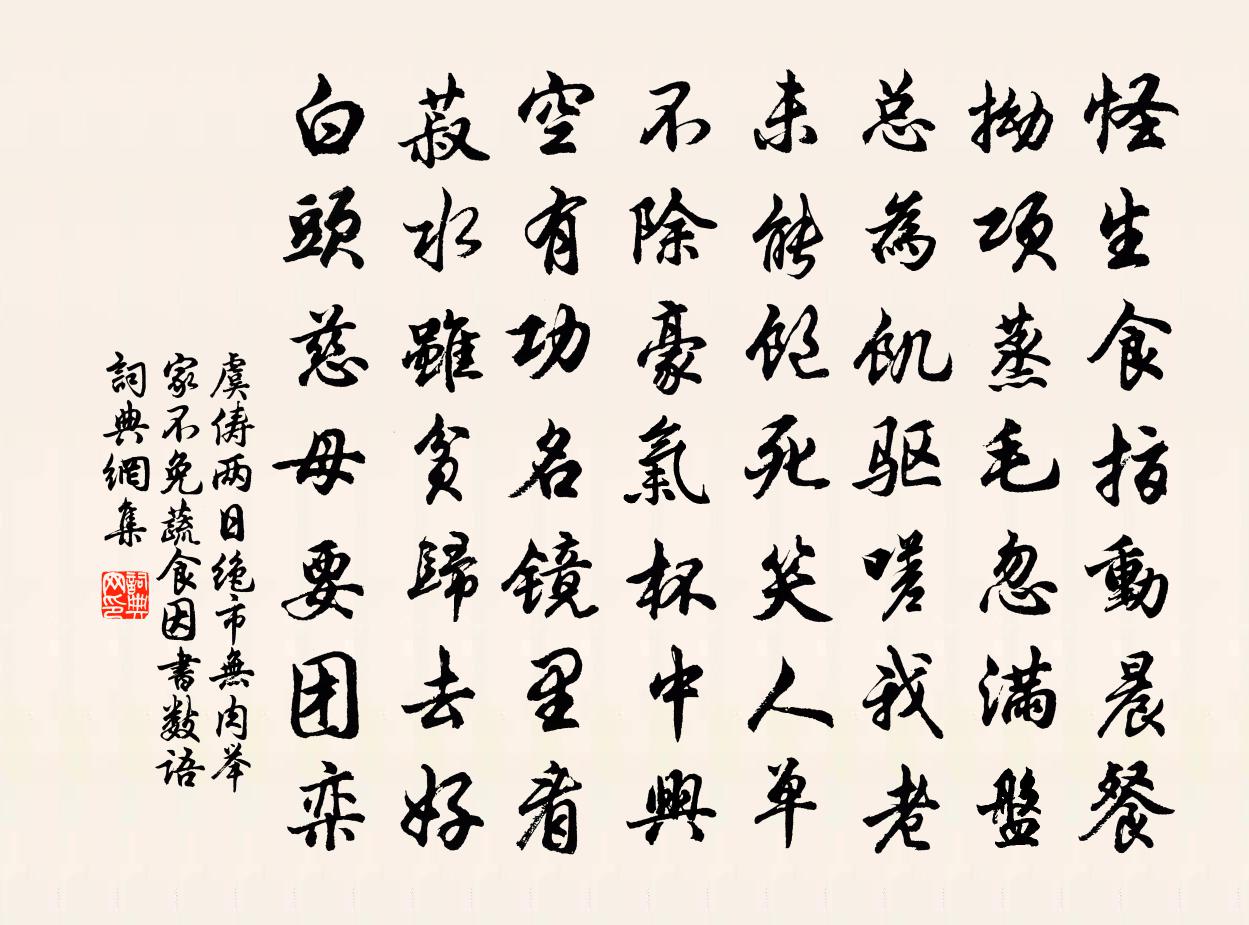 怪生食指動晨餐
拗項蒸毛忽满盤
总為飢驱嗟我老
未能飽死笑人单
不除豪氣杯中興
空有功名镜里看
菽水雖貧歸去好
白頭慈母要团栾
虞俦两日绝市無肉举
家不免蔬食因書数语
詞典網集
詞典网印